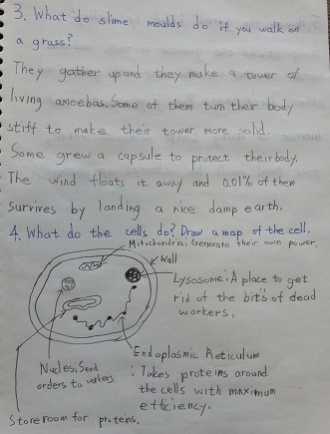 3. What do slime moulds do if you walk on
a grass?
They gather up and they make a tower of
living amoebas. Some of them turn their body
stiff to make their tower more solid.
Some grew a capsule to protect their body.
The wind floats it away and 0.01% of them
survives by landing a nice damp earth.
4. What do the cells do? Draw a map of the cell.
Mitochondria: Generate their own power.
Wall
Lysosome: A place to get
rid of the bits of dead
workers.
Nucles, Send
orders to workers
Endoplasmic Reticulum
: Takes proteins around
the cells with maximum
efficiency.
Store room for proteins.